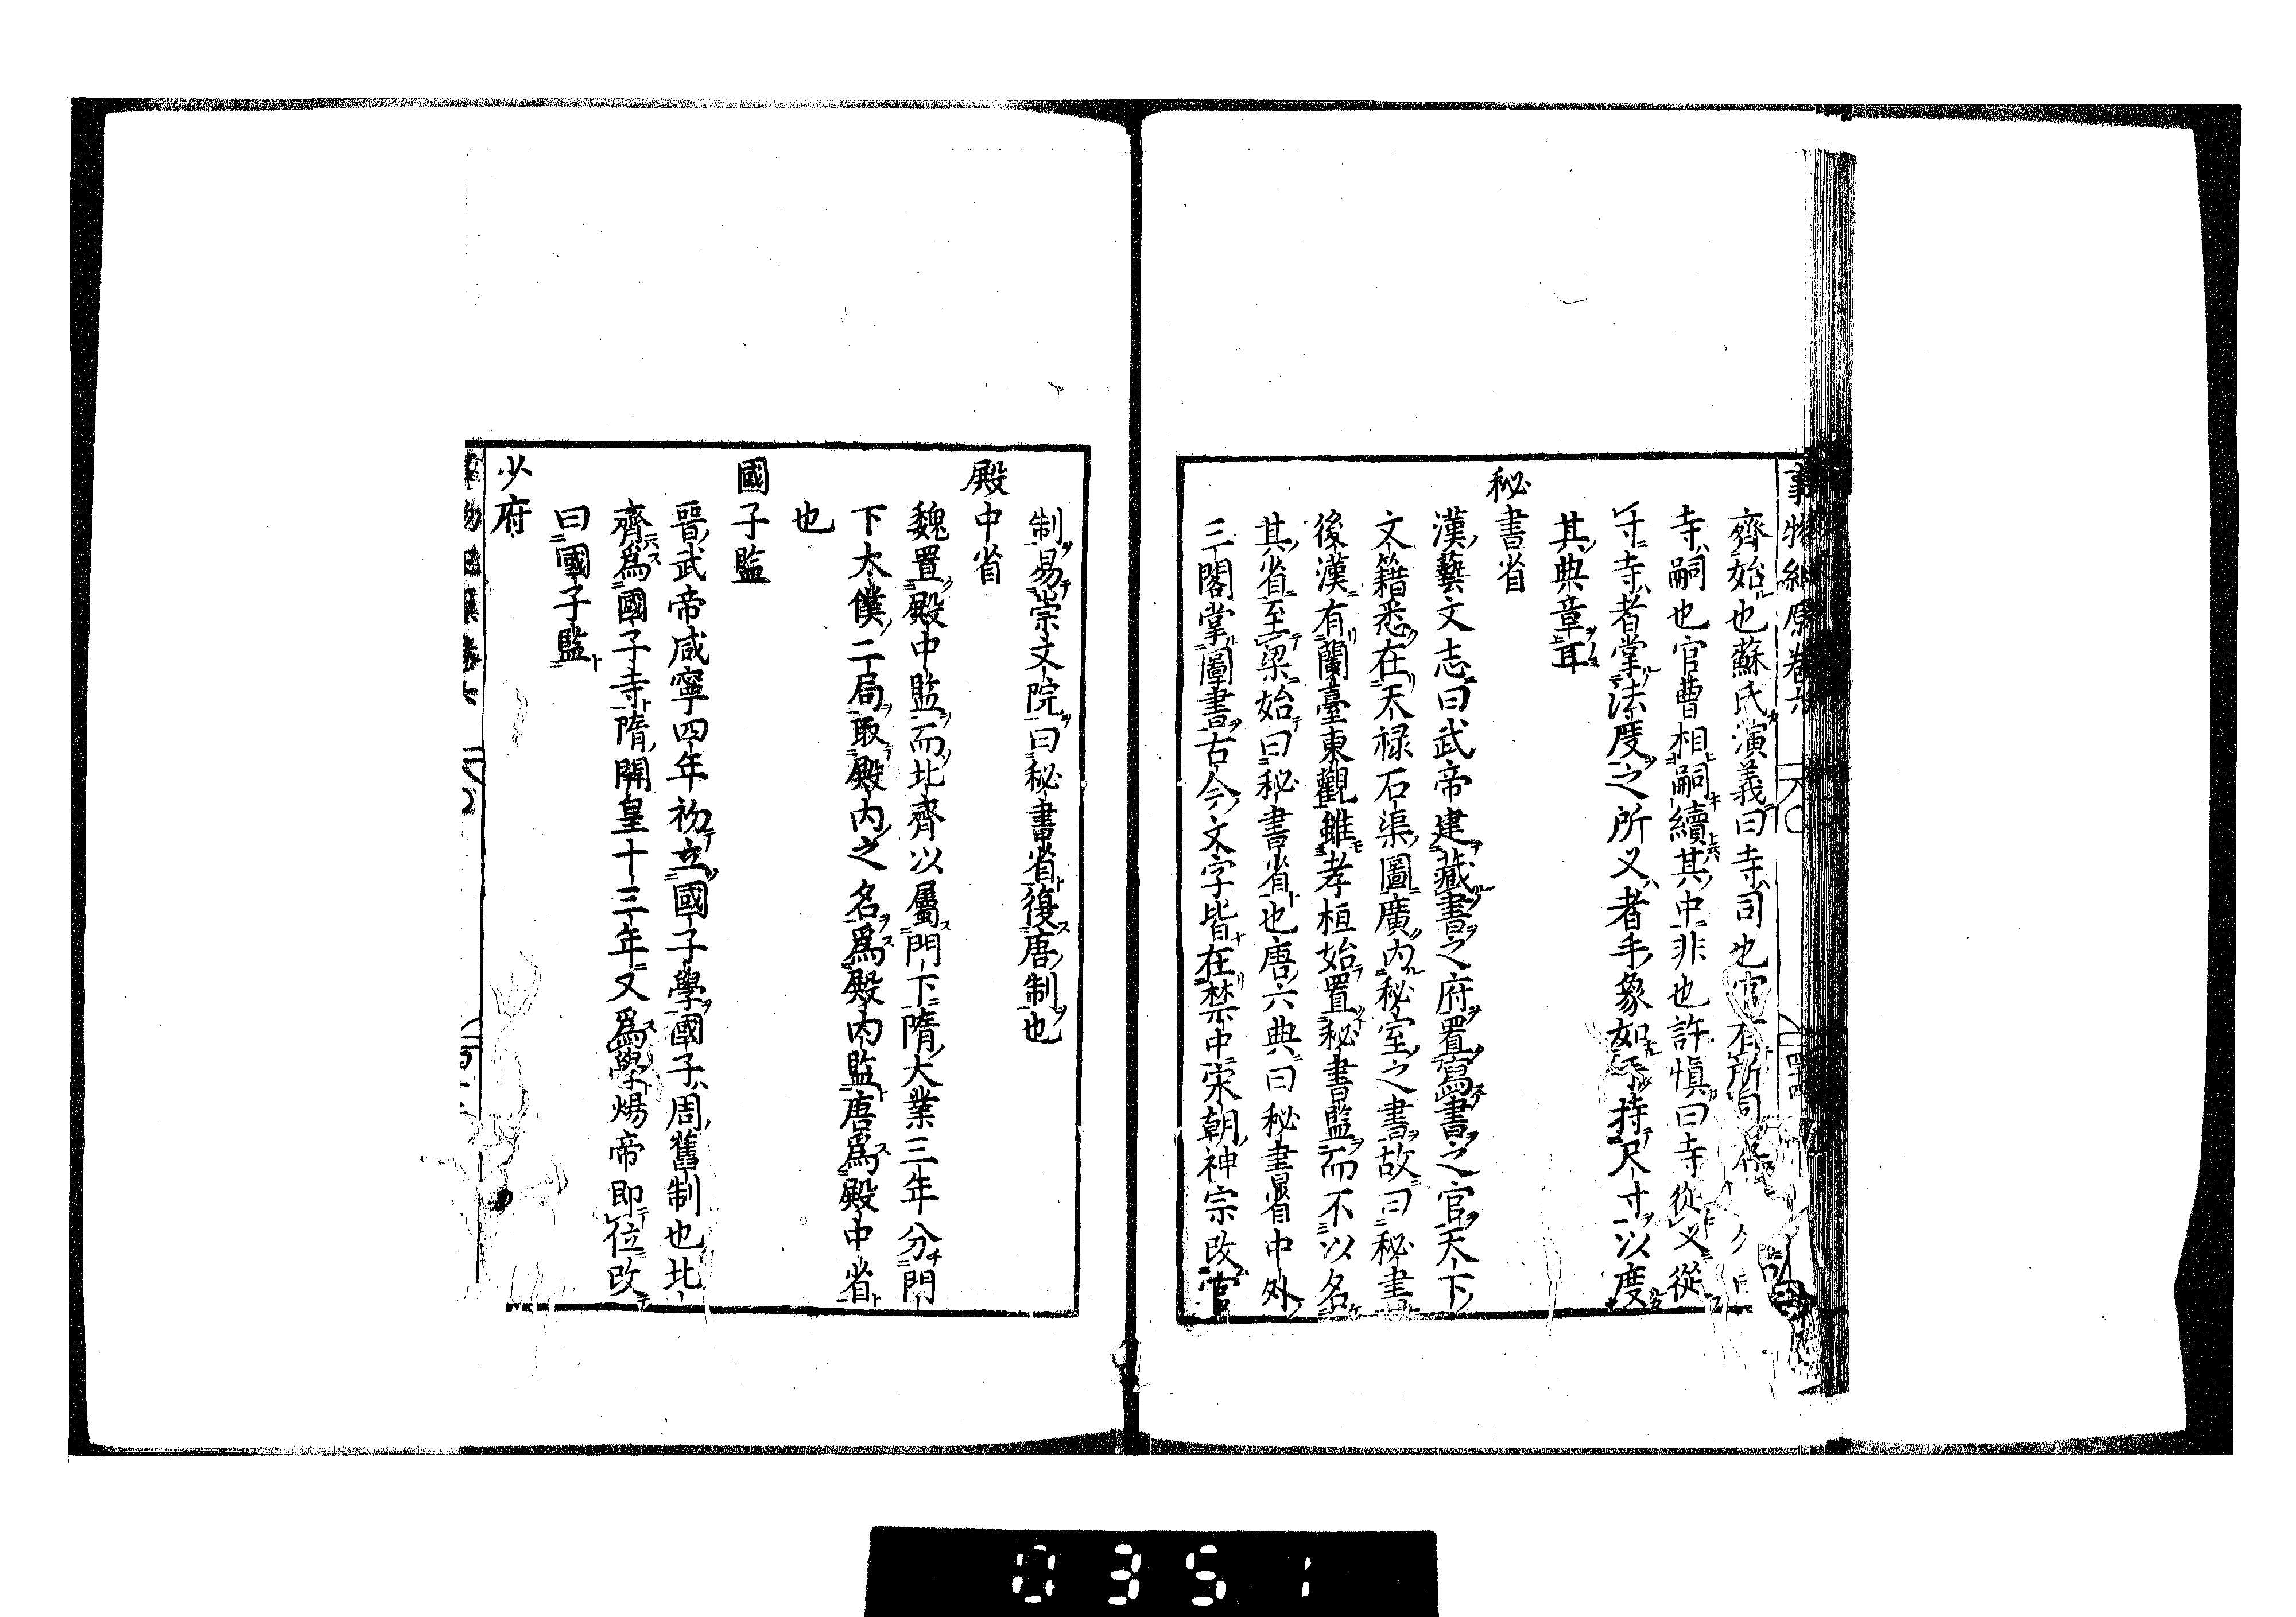 事物紀原卷六
齊始也蘇氏演義曰寺司也官有所司
寺嗣也官曹相嗣續其中非也許愼曰寺從义從
寸寺者掌法度之所义者手象如手持尺寸以度
其典章耳
秘書省
漢藝文志曰武帝建藏書之府置寫書之官天下
文籍悉在天禄石渠圖廣内秘室之書故曰秘書
後漢有蘭臺東觀雖孝桓始置秘書監而不以名
其省至梁始曰秘書省也唐六典曰秘書省中外
三閣掌圖書古今文字皆在禁中宋朝神宗改官
制易崇文院曰秘書省復唐制也
殿中省
魏置殿中監而北齊以屬門下隋大業三年分門
下太僕二局取殿内之名爲殿内監唐爲殿中省
也
國子監
晉武帝咸寧四年初立國子學國子周舊制也北
齊爲國子寺隋開皇十三年又爲學煬帝即位改
曰國子監
少府
0351